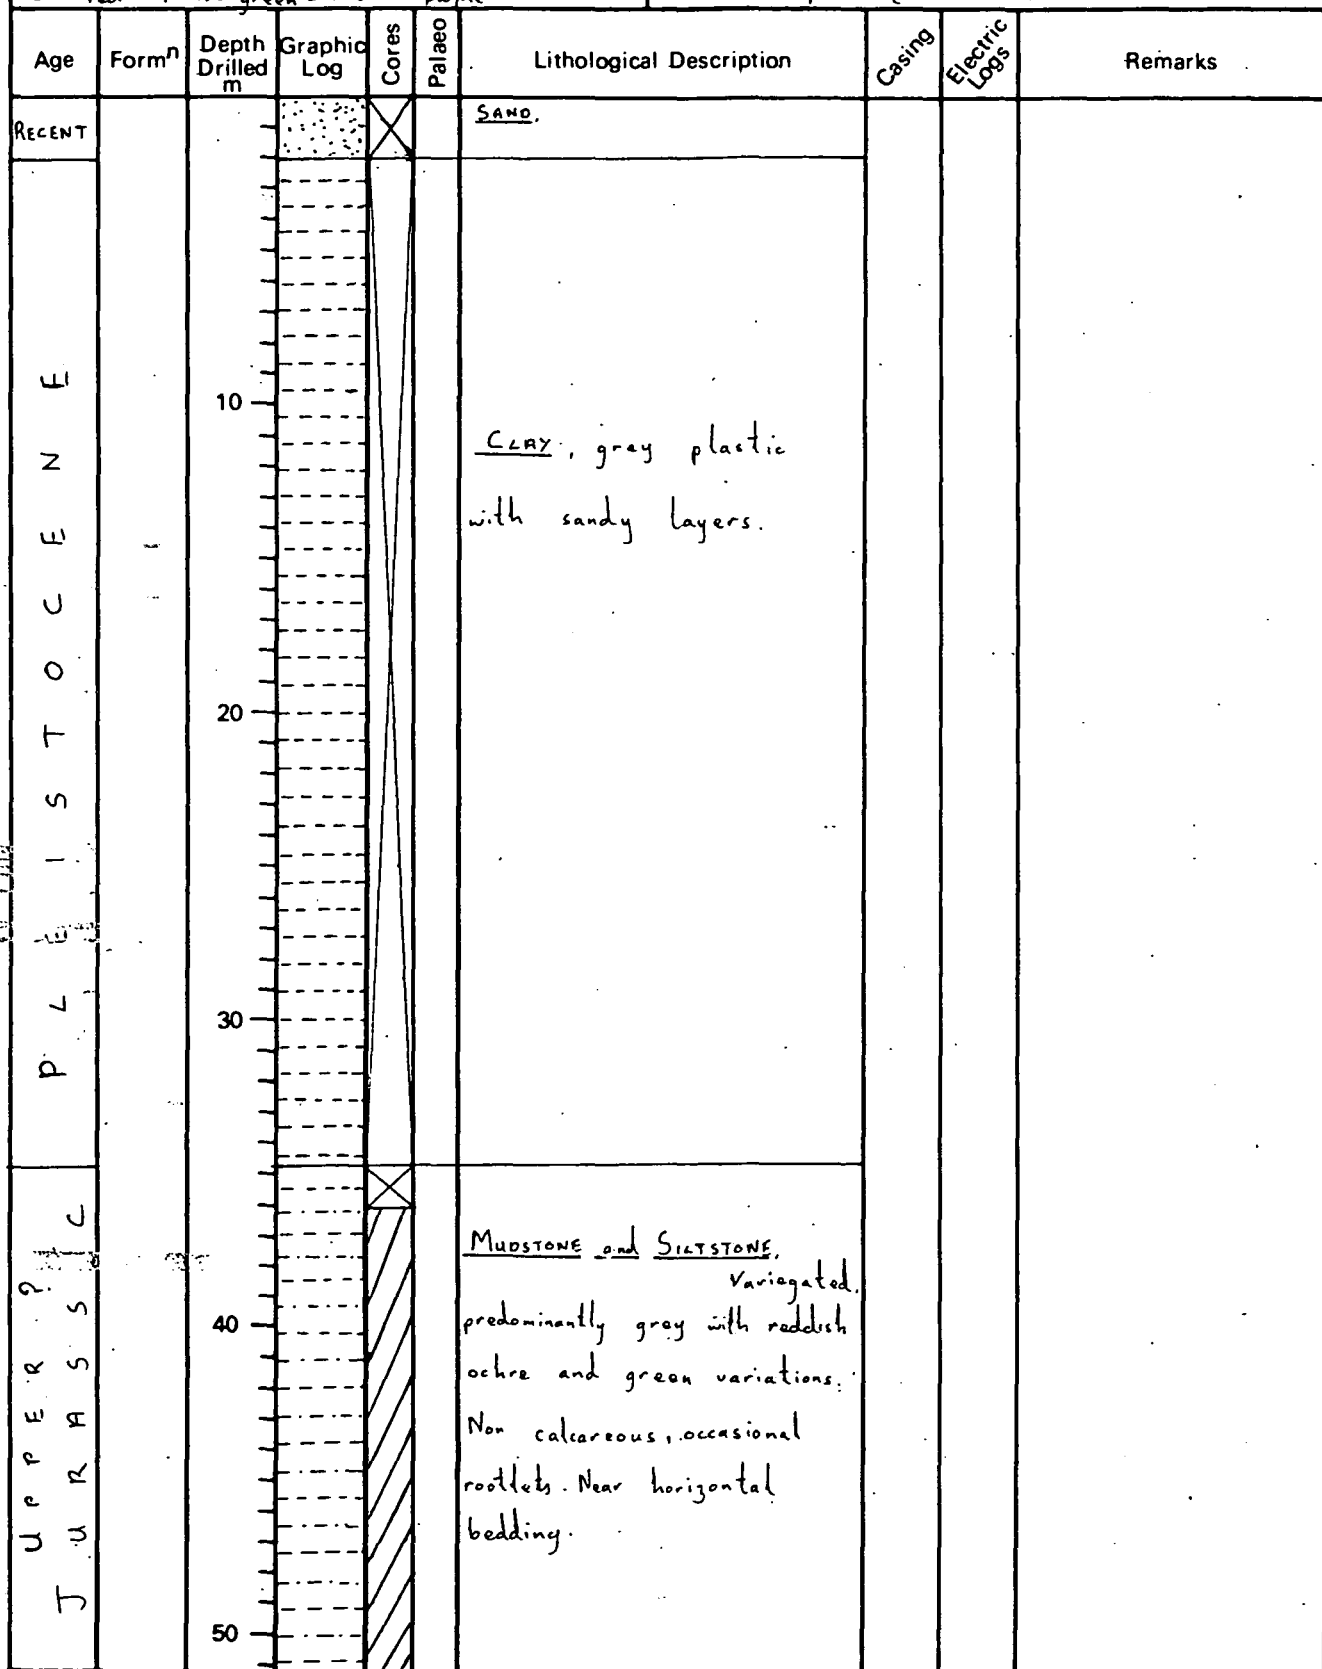 green
Age
Formn
Depth Drilled m
Graphic Log
Cores
Palaeo
Lithological Description
Casing
Electric Logs
Remarks
RECENT
SAND.
PLEISTOCENE
10
CLAY, grey plastic
with sandy layers.
20
30
UPPER?
JURASSIC
MUDSTONE and SILTSTONE,
Variegated,
predominantly grey with reddish
40
ochre and green variations.
Non calcareous, occasional
rootlets. Near horizontal
bedding.
50